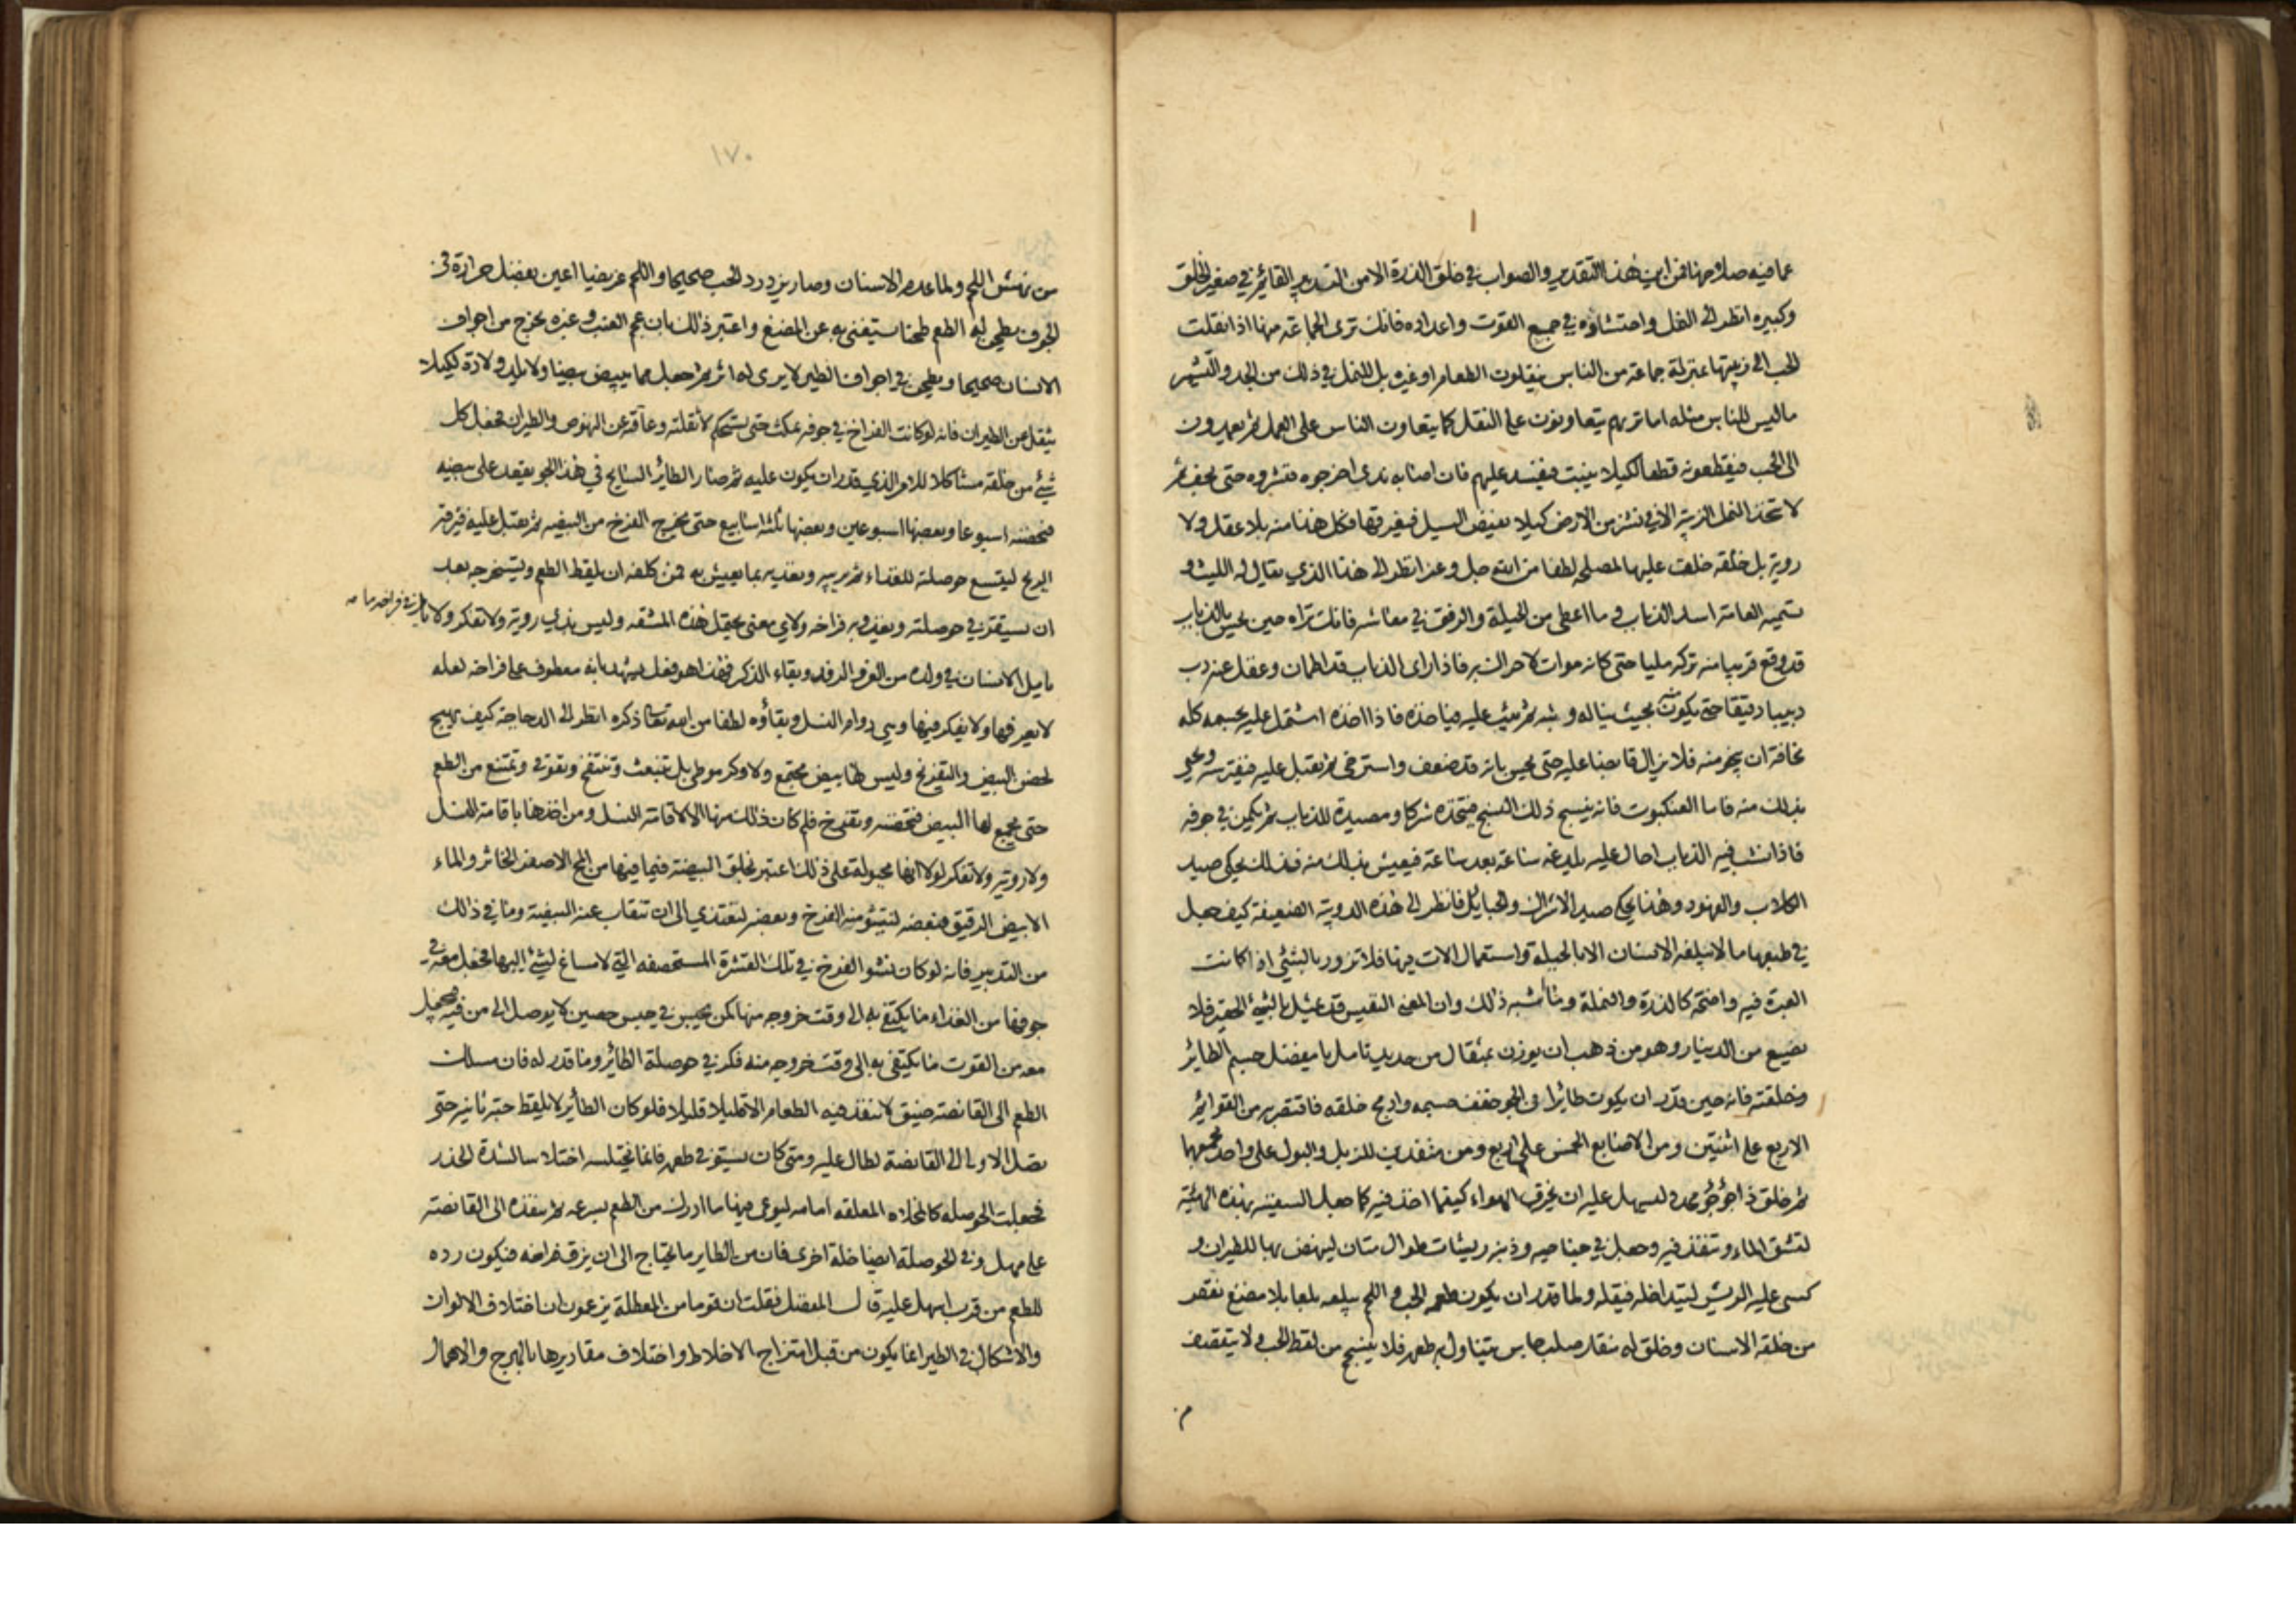 عما فيه صلاحها فمن اين هذا التقدير والصواب في خلق الذرة الا من التدبير القائم في صغير الخلق
وكبيره انظر الى النمل واحتشاده في جمع القوت واعداده فانك ترى الجماعة منها اذا نقلت
الحب الى زبيتها بمنزلة جماعة من الناس ينقلون الطعام او غيره بل للنمل في ذلك من الجد والتشمر
ما ليس للناس مثله اما تريهم يتعاونون على النقل كما يتعاون الناس على العمل ثم يعمدون
الى الحب فيقطعونه قطعا لكيلا ينبت فيفسد عليهم فان اصابه ندى اخرجوه فنشروه حتى يجف ثم
لا تتخذ النمل الزبية الا في نشز من الارض كيلا يفيض السيل فيغرقها فكل هذا منه بلا عقل ولا
روية بل خلقة خلقت عليها لمصلحة لطفا من الله جل وعز انظر الى هذا الذي يقال له الليث و
تسميه العامة اسد الذباب وما اعطي من الحيلة والرفق في معاشه فانك تراه حين يحس بالذباب
قد وقع قريبا منه تركه مليا حتى كانه موات لا حراك به فاذا راى الذباب قد اطمان وغفل عنه دب
دبيبا دقيقا حتى يكون منه بحيث يناله وثبه ثم يثب عليه فياخذه فاذا اخذه اشتمل عليه بجسمه كله
مخافة ان ينجو منه فلا يزال قابضا عليه حتى يحس بانه قد ضعف واسترخى ثم يقبل عليه فيفترسه ويحيى
بذلك منه فاما العنكبوت فانه ينسج ذلك النسج فيتخذه شركا ومصيدة للذباب ثم يكمن في جوفه
فاذا نشب فيه الذباب احال عليه يلدغه ساعة بعد ساعة فيعيش بذلك منه فذلك يحكى صيد
الكلاب والفهود وهذا يحكى صيد الاشراك والحبايل فانظر الى هذه الدويبة الضعيفة كيف جعل
في طبعها ما لا يبلغه الانسان الا بالحيلة واستعمال الات فيها فلا تزدر بالشئ اذا كانت
العبرة فيه واضحة كالذرة والنملة وما اشبه ذلك وان المعنى النفيس قد يمثل بالشئ الحقير فلا
يضع من الدينار وهو من ذهب ان يوزن بمثقال من حديد تامل يا مفضل جسم الطائر
وخلقته فانه حين قدر ان يكون طائرا في الجو خفف جسمه وادمج خلقه فاقتصر به من القوائم
الاربع على اثنتين ومن الاصابع الخمس على اربع ومن منفذين للزبل والبول على واحد يجمعهما
ثم خلق ذا جؤجؤ محدد ليسهل عليه ان يخرق الهواء كيفما اخذ فيه كما جعل السفينة بهذه الهيئة
لتشق الماء وتنفذ فيه وجعل في جناحيه وذنبه ريشات طوال متان لينهض بها للطيران و
كسى عليه الريش ليتداخله فيقله ولما قدر ان يكون طعمه الحب واللحم يبلعه بلعا بلا مضغ نقص
من خلقه الاسنان وخلق له منقار صلب جاس يتناول به طعمه فلا ينسج من لقط الحب ولا يتقصف
١٧٠
من نهش اللحم ولما عدم الاسنان وصار يزدرد الحب صحيحا واللحم غريضا اعين بفضل حرارة في
الجوف يطحن له الطعم طحنا يستغنى به عن المضغ واعتبر ذلك بان عجم العنب وغيره يخرج من اجواف
الانسان صحيحا ويطحن في اجواف الطير لا يرى له اثر ثم جعل مما يبيض بيضا ولا يلد ولادة لكيلا
يثقل عن الطيران فانه لو كانت الفراخ في جوفه تمكث حتى يستحكم لأثقلته وعاقه عن النهوض والطيران فجعل كل
شئ من خلقه مشاكلا للامر الذي قدر ان يكون عليه ثم صار الطائر السابح في هذا الجو يقعد على بيضه
فيحضنه اسبوعا وبعضها اسبوعين وبعضها ثلثة اسابيع حتى يخرج الفرخ من البيضة ثم يقبل عليه فيزقه
الريح ليتسع حوصلته للغذاء ثم يربيه ويغذيه بما يعيش به فمن كلفه ان يلقط الطعم ويستخرجه بعد
ان يستقر في حوصلته ويغذو به فراخه ولاي معنى يحتمل هذه المشقة وليس بذي روية ولا تفكر ولا يأمل في فراخه ما
يامل الانسان في ولده من العز والرفد وبقاء الذكر فهذا هو فعل يشهد بانه معطوف على فراخه لعلة
لا يعرفها ولا يفكر فيها وهي دوام النسل وبقاؤه لطفا من الله تعالى ذكره انظر الى الدجاجة كيف تهيج
لحضن البيض والتفريخ وليس لها بيض مجتمع ولا وكر موطى بل تنبعث وتنتفخ وتقوقى وتمتنع من الطعم
حتى يجمع لها البيض فتحضنه وتفرخ فلم كان ذلك منها الا لاقامة النسل ومن اخذها باقامة النسل
ولا روية ولا تفكر لولا انها مجبولة على ذلك اعتبر بخلق البيضة وما فيها من المح الاصفر الخاثر والماء
الابيض الرقيق فبعضه لينتشؤ منه الفرخ وبعضه ليغتذي الى ان تنقاب عنه البيضة وما في ذلك
من التدبير فانه لو كان نشو الفرخ في تلك القشرة المستحصفة التي لا مساغ لشئ اليها لجعل معه في
جوفها من الغذاء ما يكتفى به الى وقت خروجه منها كمن يحبس في حبس حصين لا يوصل الى من فيه فيجعل
معه من القوت ما يكتفي به الى وقت خروجه منه فكر في حوصلة الطائر وما قدر له فان مسلك
الطعم الى القانصة ضيق لا ينفذ فيه الطعام الا قليلا قليلا فلو كان الطائر لا يلقط حبة ثانية حتى
تصل الاولى الى القانصة لطال عليه ومتى كان يستوفي طعمه فانما يختلسه اختلاسا لشدة الحذر
فجعلت الحوصلة كالمخلاه المعلقه امامه ليوعى فيها ما ادرك من الطعم بسرعه ثم ينفذه الى القانصة
على مهل وفي الحوصلة ايضا خلة اخرى فان من الطاير ما يحتاج الى ان يزق فراخه فيكون رده
للطعم من قرب اسهل عليه قال المفضل فقلت ان قوما من المعطلة يزعمون ان اختلاف الالوان
والاشكال في الطير انما يكون من قبل امتزاج الاخلاط واختلاف مقاديرها بالهرج والاهمال